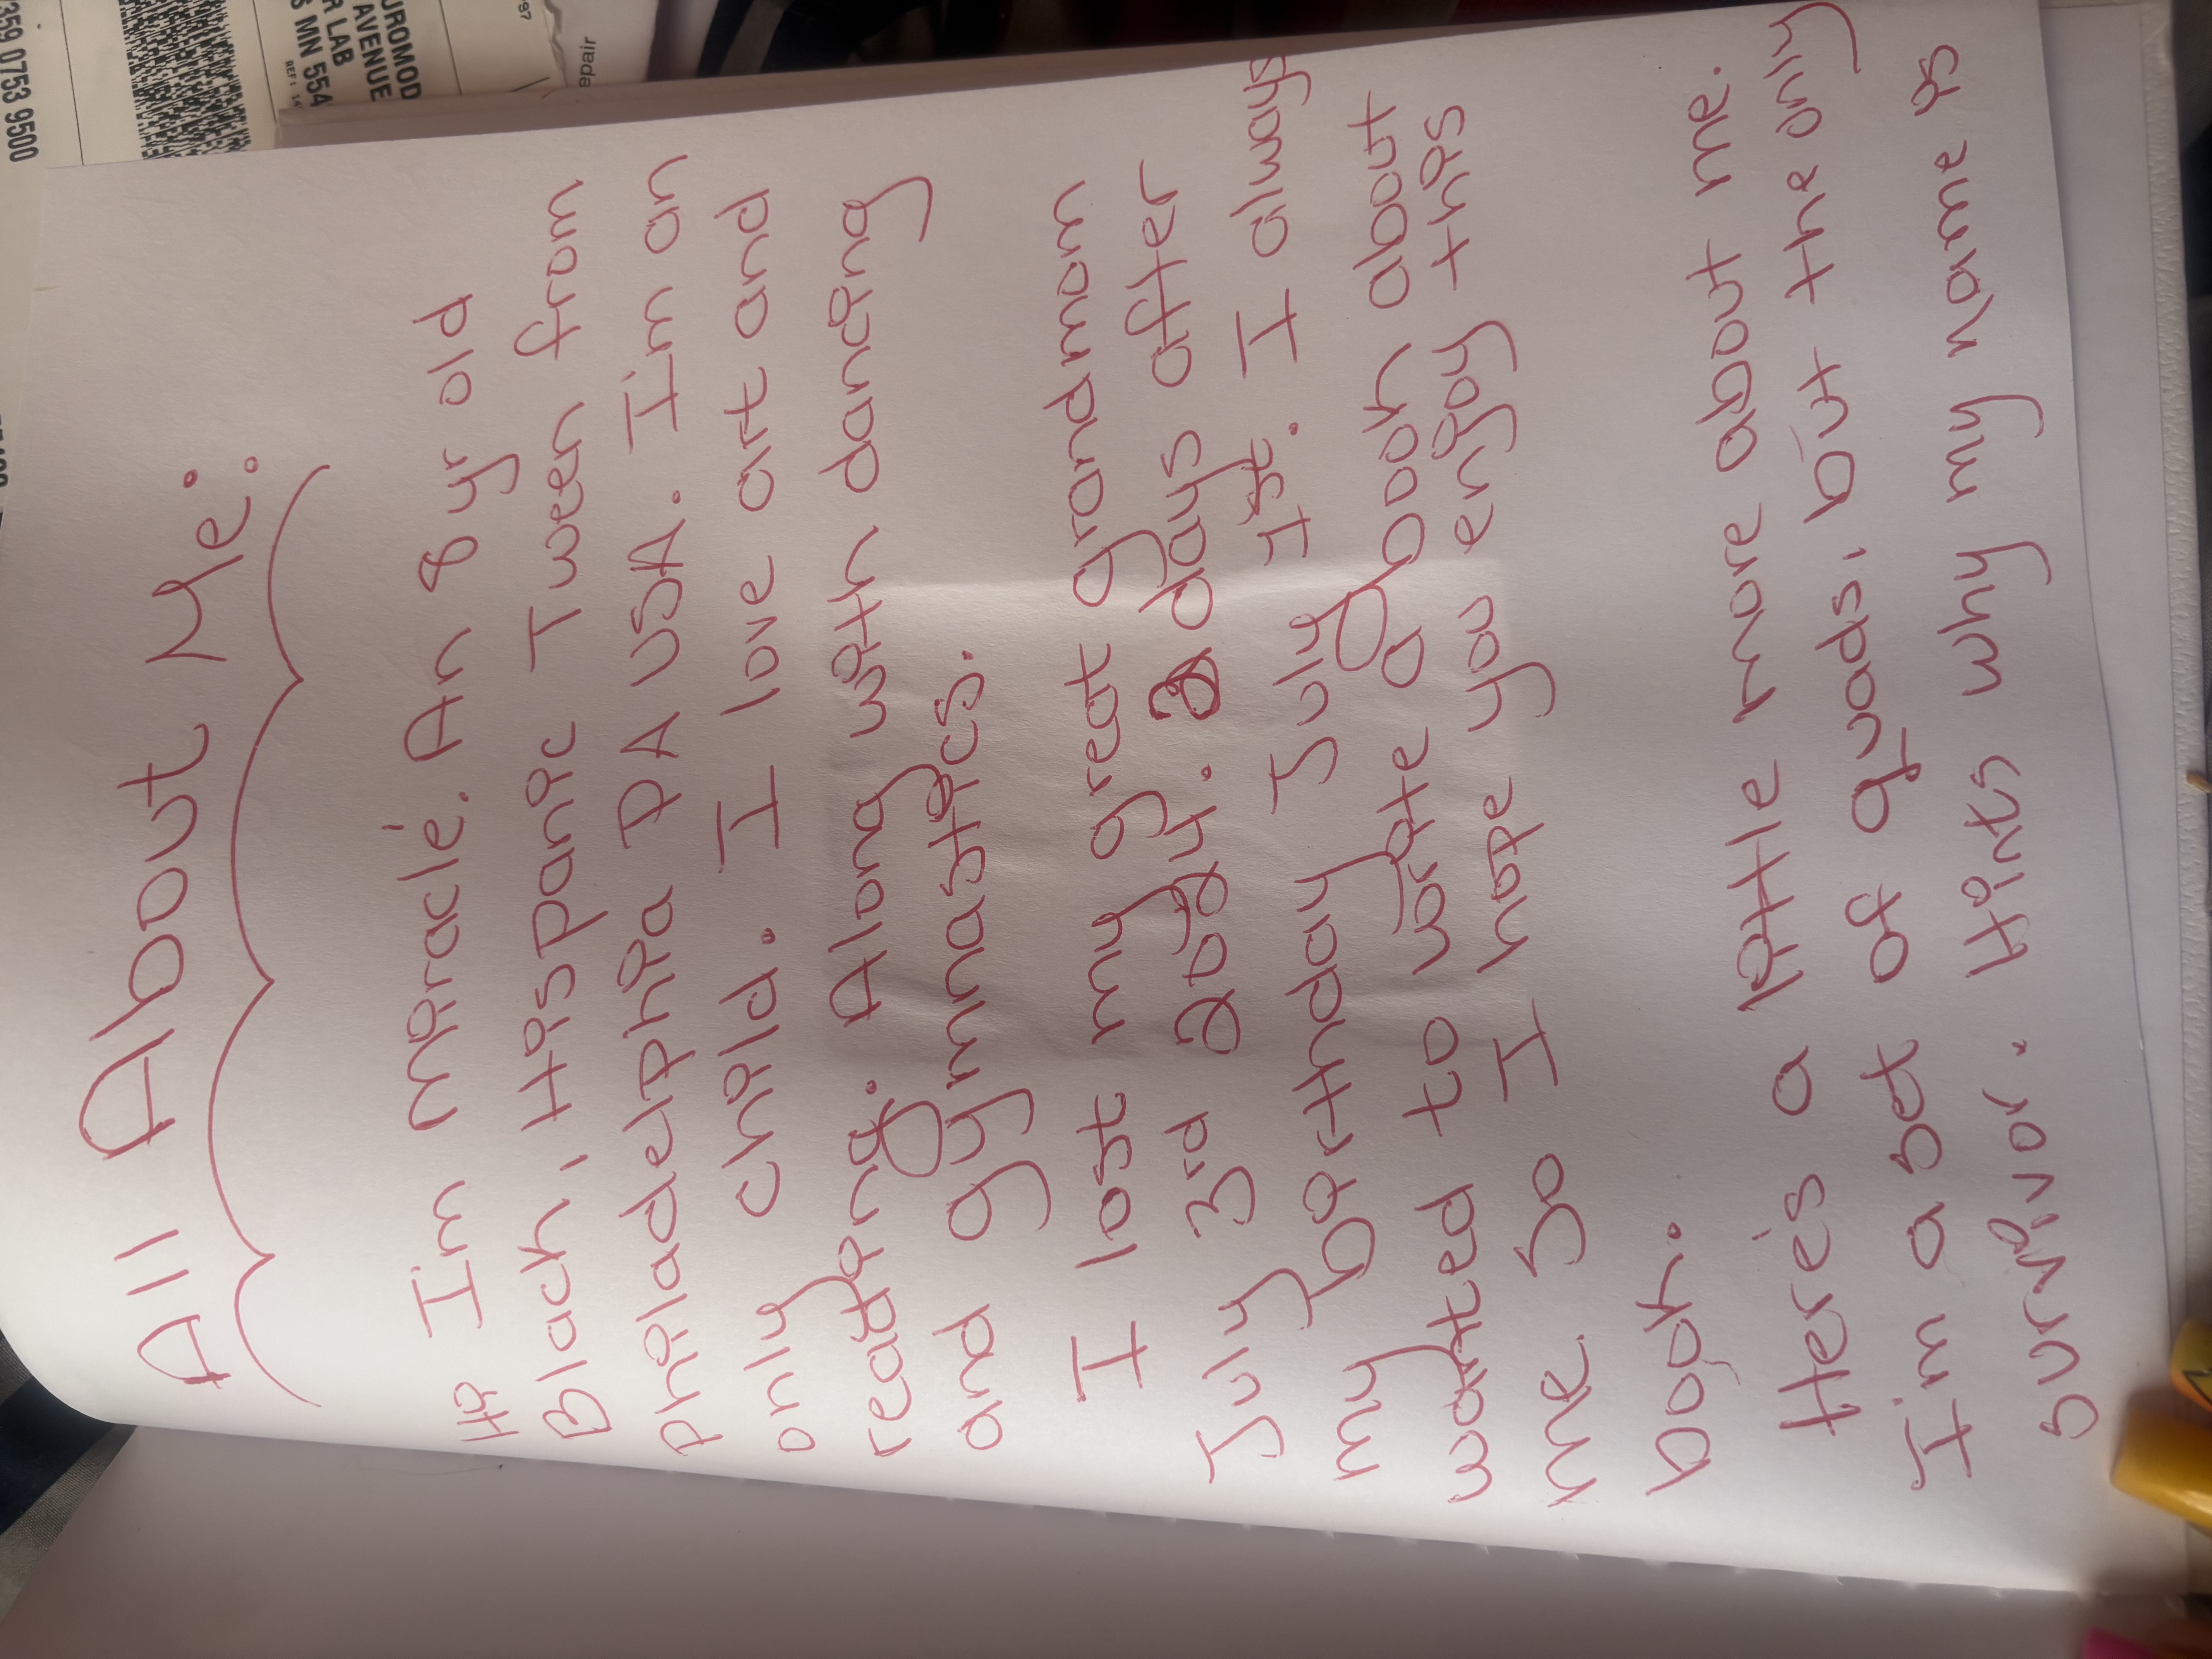 All About Me:
Hi I'm miracle. An 8 yr old
Black, Hispanic Tween from
philadelphia PA USA. I'm an
only child. I love art and
reading. Along with dancing
and gymnastics.
I lost my great grandmom
July 3rd 2024. 2 days after
my birthday July 1st. I always
wanted to write a book about
me so I hope you enjoy this
book.
Here's a little more about me.
I'm a set of quads, but the only
survivor. Hints why my name is
359 0753 9500
UROMOD
R LAB
AVENUE
S MN 554
epair